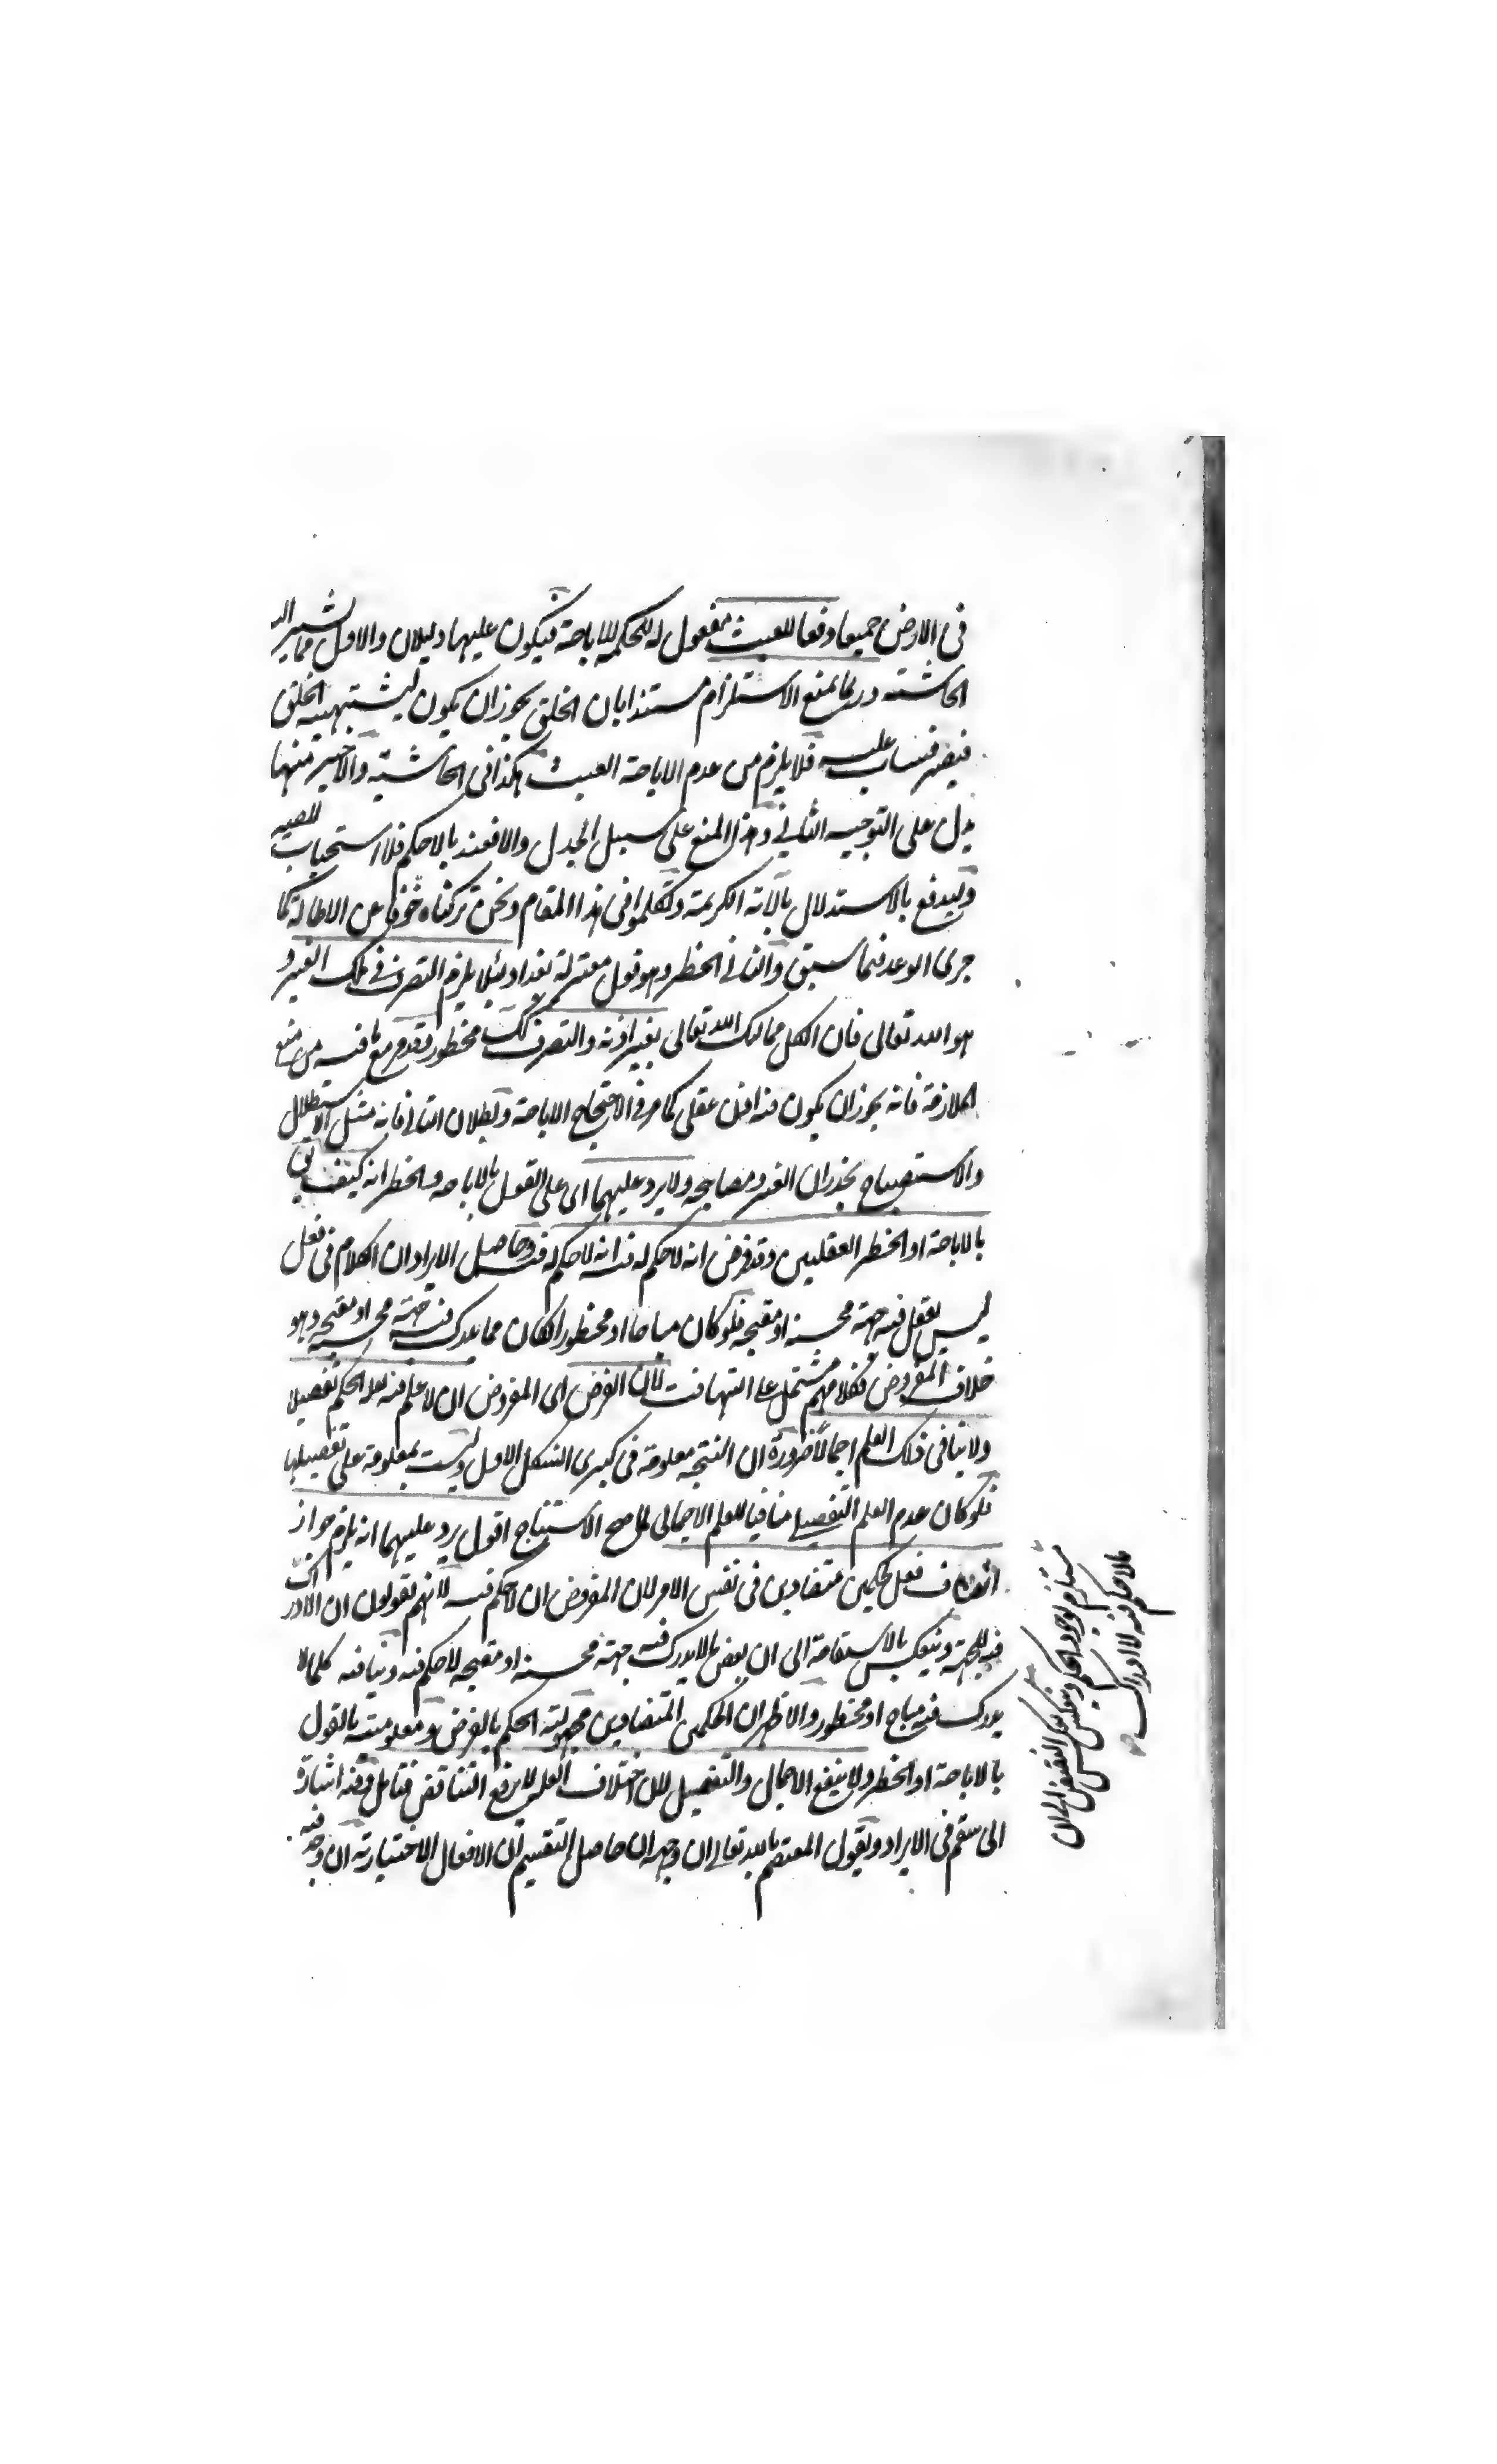 فى الارض جميعا دفعا للعبث مفعول له للحكم بالاباحة فيكون عليها دليلان والاول مما يشير اليه
الحاشية وربما يمنع الاستلزام مستندا بان الخلق يجوز ان يكون ليشتهيه الخلق
فيصبر فيثاب عليه فلا يلزم من عدم الاباحة العبث هكذا فى الحاشية والاخير منها
يدل على التوجيه الثانى وهذا المنع على سبيل الجدل والا فعند بالاحكم فلا استحباب للصبر
وليدفع بالاستدلال بالآية الكريمة وتكلموا فى هذا المقام ونحن تركناه خوفا عن الاطالة كما
جرى الوعد فيما سبق والثانى الحظر وهو قول معتزلة بغداد لئلا يلزم التصرف فى ملك الغير و
هو الله تعالى فان الكل ممالك الله تعالى بغير اذنه والتصرف كك محظور وقد مر مع ما فيه من منع
الملازمة فانه يجوز ان يكون فيه اذن عقلى كما مر فى الاحتجاج الاباحة وبطلان التالى فانه مثل الاستظلال
والاستصباح بجدران الغير ومصابيحه ولا يرد عليهما اى على القول بالاباحة والحظر انه كيف يق
بالاباحة او الحظر العقليين وقد فرض انه لا حكم له فيه انه لا حكم له فيه وحاصل الايراد ان الكلام فى فعل
ليس يعقل فيه جهة محسنة او مقبحة فلو كان مباحا او محظورا لكان مما يدرك فيه جهة محسنة او مقبحة وهو
خلاف المفروض فكلامهم مشتمل على التهافت لان الفرض اى المفروض ان لا علم فيه بعد الحكم تفصيلا
ولا ينافى ذلك العلم اجمالا ضرورة ان النتيجة معلومة فى كبرى الشكل الاول وليست بمعلومة على تفصيلها
فلو كان عدم العلم التفصيلى منافيا للعلم الاجمالى لما صح الاستنتاج اقول يرد عليهما انه يلزم جواز
اتصاف فعل بحكمين متضادين فى نفس الامر لان المفروض ان لا حكم فيه لانهم يقولون ان الادراك
فيه للجهة وينعكس بالاستقامة الى ان بعض مالايدرك فيه جهة محسنة او مقبحة لا حكم فيه وينافيه كلما لا
يدرك فيه مباح او محظور والاظهر ان الحكمين المتضادين مجهولية الحكم بالفرض ومعلوميته بالقول
بالاباحة او الحظر ولا ينفع الاجمال والتفصيل لان اختلاف العلم لا يرفع التناقض فتامل وفيه اشارة
الى سقم فى الايراد ويقول المعتصم بالله تعالى ان وجهه ان حاصل التقسيم ان الافعال الاختيارية ان وجد فيه
مستلزم لوجود الحكم وينعكس بعكس النقيض الى ان
مالا حكم فيه لا ادراك